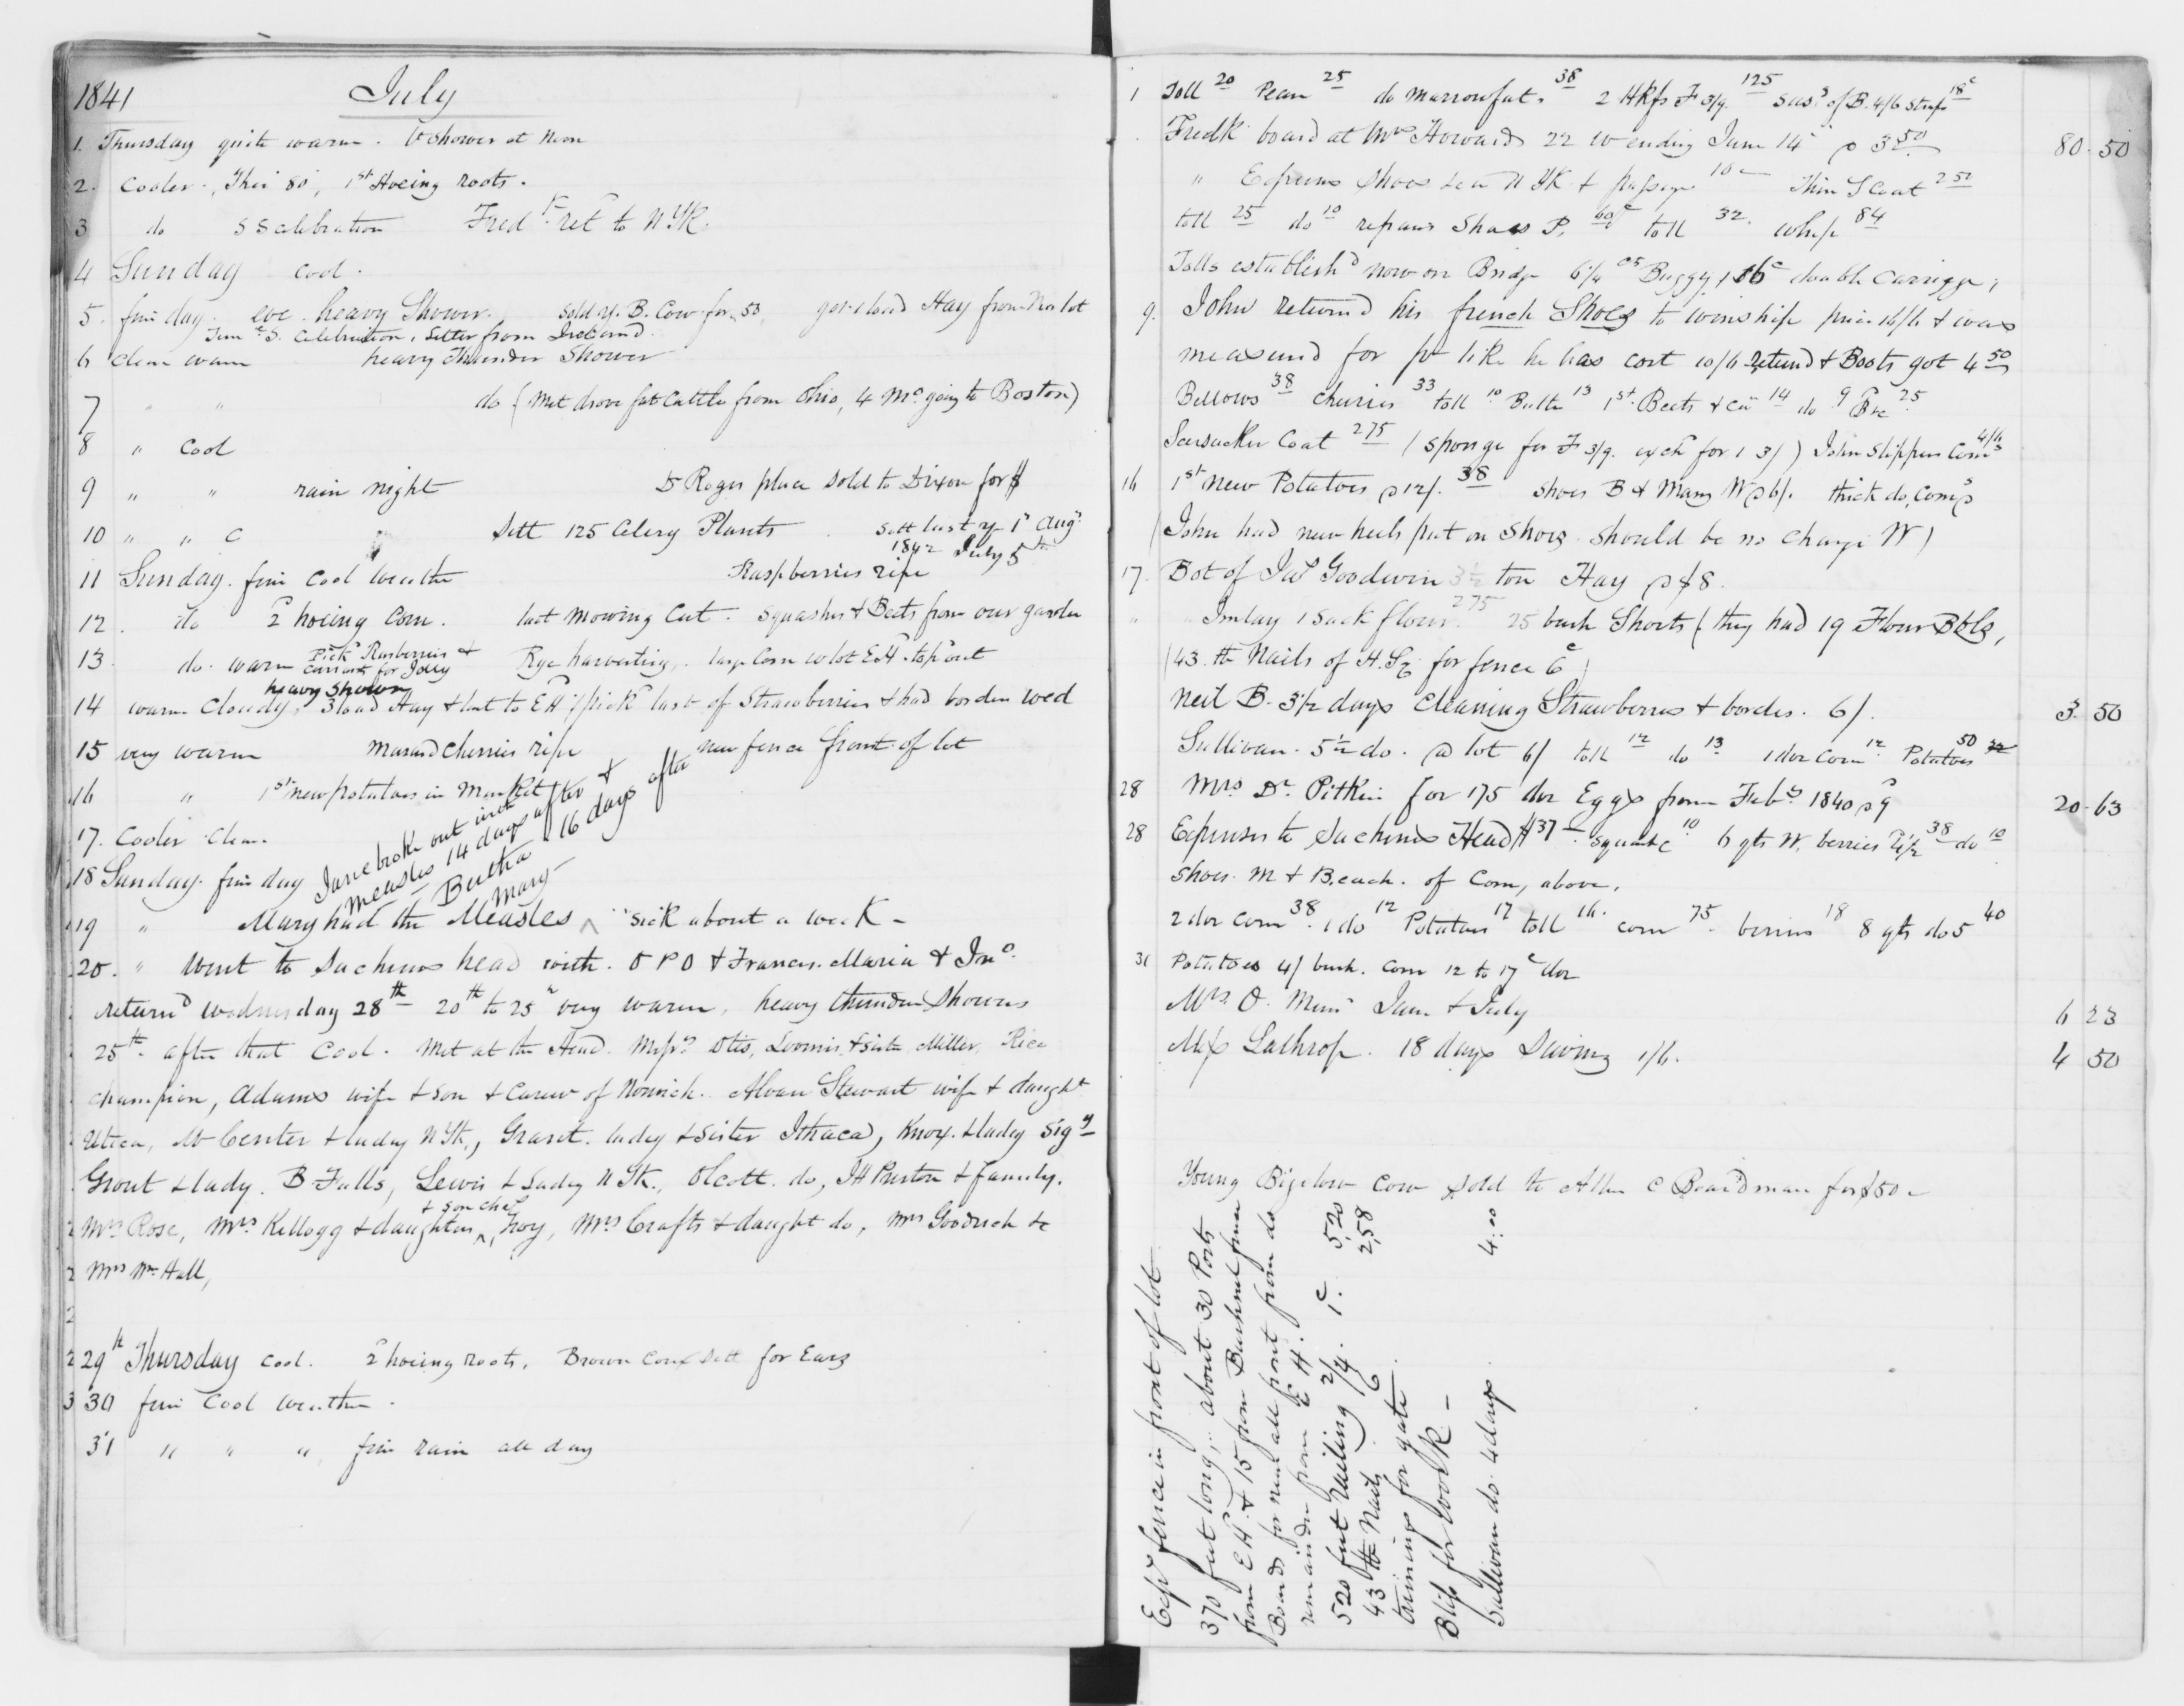 1841 July
1. Thursday quite warm. shower at Noon
2. Cooler. Ther 80, 1st Hoeing roots.
3 do S S celebration Fredk ret to N YK.
4 Sunday cool.
5. fine day. eve. heavy Shower. Sold y. B. Cow for 53 got load Hay from lot
Celebration, letter from Ireland
6 clear warm heavy Thunder Shower
7 " " do (Met drove fat Cattle from Ohio, 4 Mo going to Boston)
8 " Cool
9 " " rain night Dr Roger place sold to Dixon for $
10 " " C Sett 125 Celery Plants sett last yr 1st Augt
1842 July 5th
11 Sunday. fine cool weather Raspberries ripe
12. do 2d hoeing Corn. last mowing Cut. squashes & Beets from our garden
13 do. warm Pickd Rasberries & Rye harvesting, large Corn lot EH. topd out
Currant for Jelly
heavy shower
14 warm Cloudy, 3 load Hay & last to EH, pickd last of Strawberries & had border wed
15 very warm Mazard Cherries ripe new fence front of lot
16 " 1st new potatoes in Market
17. Cooler Clear.
18 Sunday. fine day
Jane broke out with
measles 14 days after &
Bertha 16 days after
Mary
19 " Mary had the Measles ^ sick about a week -
20. " Went to Sachems head with. O P O & Frances. Maria & Jno.
returnd Wednesday 28th 20th to 25th very warm, heavy thunder showers
25th. after that Cool. Met at the Head. Messrs Otis, Loomis, & sister Miller, Rice
Champion, Adams wife & son & Carew of Norwich. Alvan Stewart wife & daught
Utica, Mr Center & lady N Yk., Grant. lady & sister Ithaca, Knox. & lady
Grout & lady. B. Falls, Lewis & Lady N Yk., Olcott. do, JH Preston & family.
& son
Mrs Rose, Mrs Kellogg & daughters ^, Troy, Mrs Crafts & daught do, Mrs Goodrich &c
Mrs Wm Hall,
29th Thursday cool. 2d hoeing roots. Brown Corn sett for Ears
30 fine Cool weather.
31 " " " fine rain all day
1 Toll 20 Pears 25 do Marrowfats. 38 2 Hkfs F 3/9. 125 B. 4/6 18c
Fredk board at Mrs Howards 22 w ending June 14 @ 3 50 80. 50
" Expenses Shoes &c N YK & passage 10- Thin S Coat 2 50
toll 25 do 10 repairs Shoes P. 60c toll 32. whip 84
Tolls establishd now on Bridge 6 1/4 cs Buggy, 16c double Carriage,
9. John returnd his french Shoes to Winship price 16/6 & was
measured for pr like he has cost 10/6 returnd & Boots got 4 50
Bellows 38 cherries 33 toll 10 Butter 13 1st Beets & Cu 14 do 9 25
Seersucker Coat 275 (sponge for F 3/9. exchd for 1 3/) John Slippers Coms 4/6
16 1st new Potatoes @ 12/. 38 Shoes B & Mary W @ 6/. thick do, Coms
(John had new heels put on Shoes should be no charge W)
17. Bot of Jas Goodwin 3 1/2 ton Hay @ $8.
" Imlay 1 sack flour. 275 25 bush Shorts (they had 19 Flour Bbls,
(43. lb Nails of H. S for fence 6c)
Neil B. 3 1/2 days Cleaning Strawberries & border. 6/. 3. 50
Sullivan. 5 1/2 do. @ lot 6/ toll 12 do 13 1 doz Corn 12 Potatoes 50
28 Mrs Dr. Pitkin for 175 doz Eggs from Feby 1840 @ 9 20. 63
28 Expenses to Sachems Head $37- squash 10 6 qts W. berries 38 do 10
Shoes. M & B. each. of Com, above,
2 doz corn 38. 1 do 12 Potatoes 17 toll 16. corn 75. berries 18 8 qts do 5 40
31 Potatoes 4/ bush. Corn 12 to 17c doz
Mrs. O. June & July 6 23
Miss Lathrop. 18 days Sewing 1/6. 4 50
Young Bigelow Cow sold to Allen C Boardman for $50-
Exps fence in front of lot
370 feet long, about 30 Posts
from EH & 15 from Bushnel fence
Boards for new all front from do
remainder from E H.
520 feet railing 2/4. 1.c 5.20
43 lb Nails 6 2.58
trimings for gate.
Blip for work -
Sullivan do. 4 days 4.00